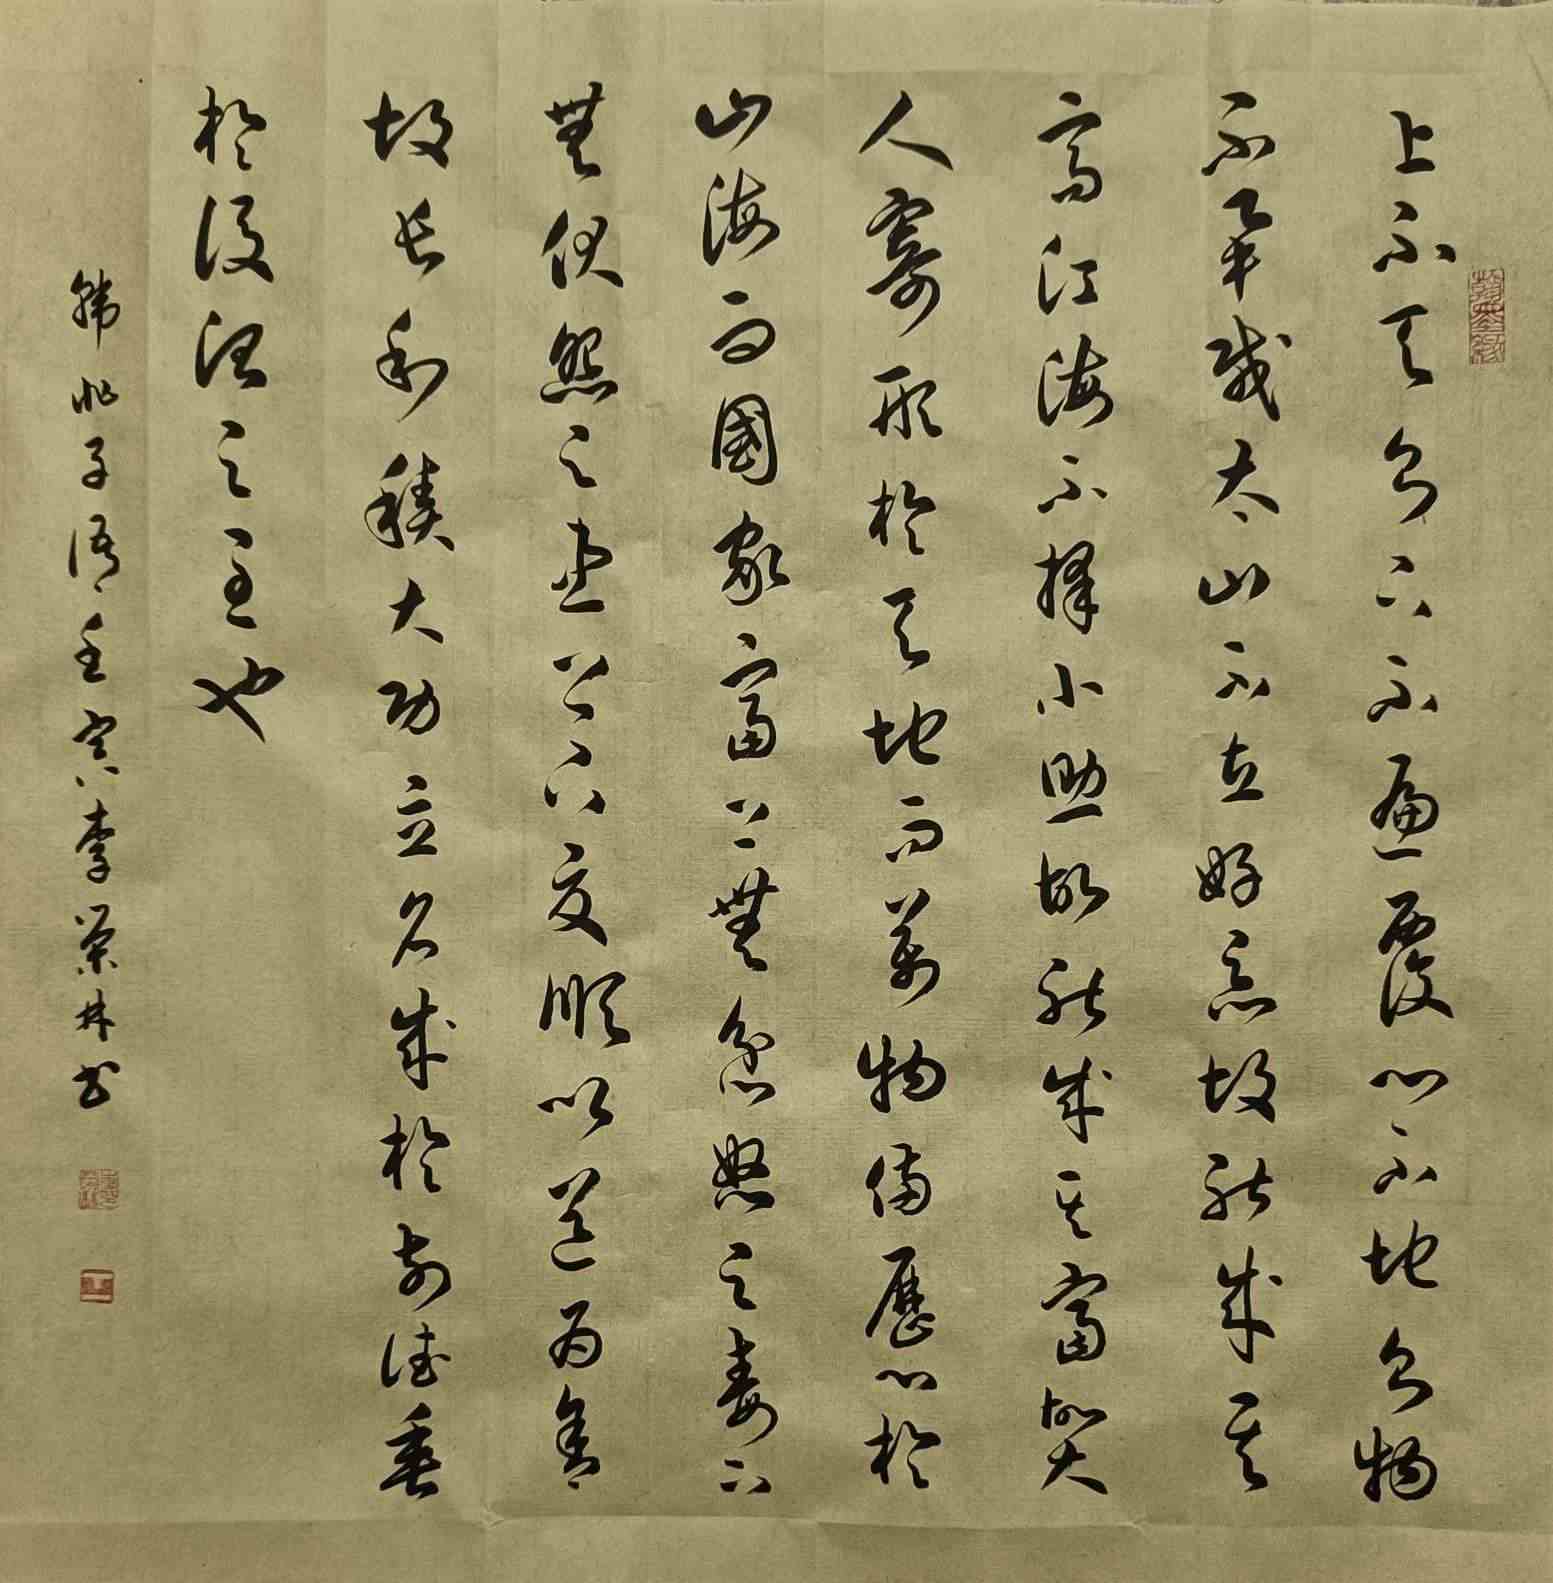 翰墨緣
上不天則下不遍覆心不地則物
不畢載太山不立好惡故能成其
高江海不擇小助故能成其富故大
人寄形於天地而萬物備歷心於
山海而國家富上無忿怒之毒下
無伏怨之患上下交順以道為舍
故長利積大功立名成於前德垂
於後治之至也
韓非子語壬寅李榮林書